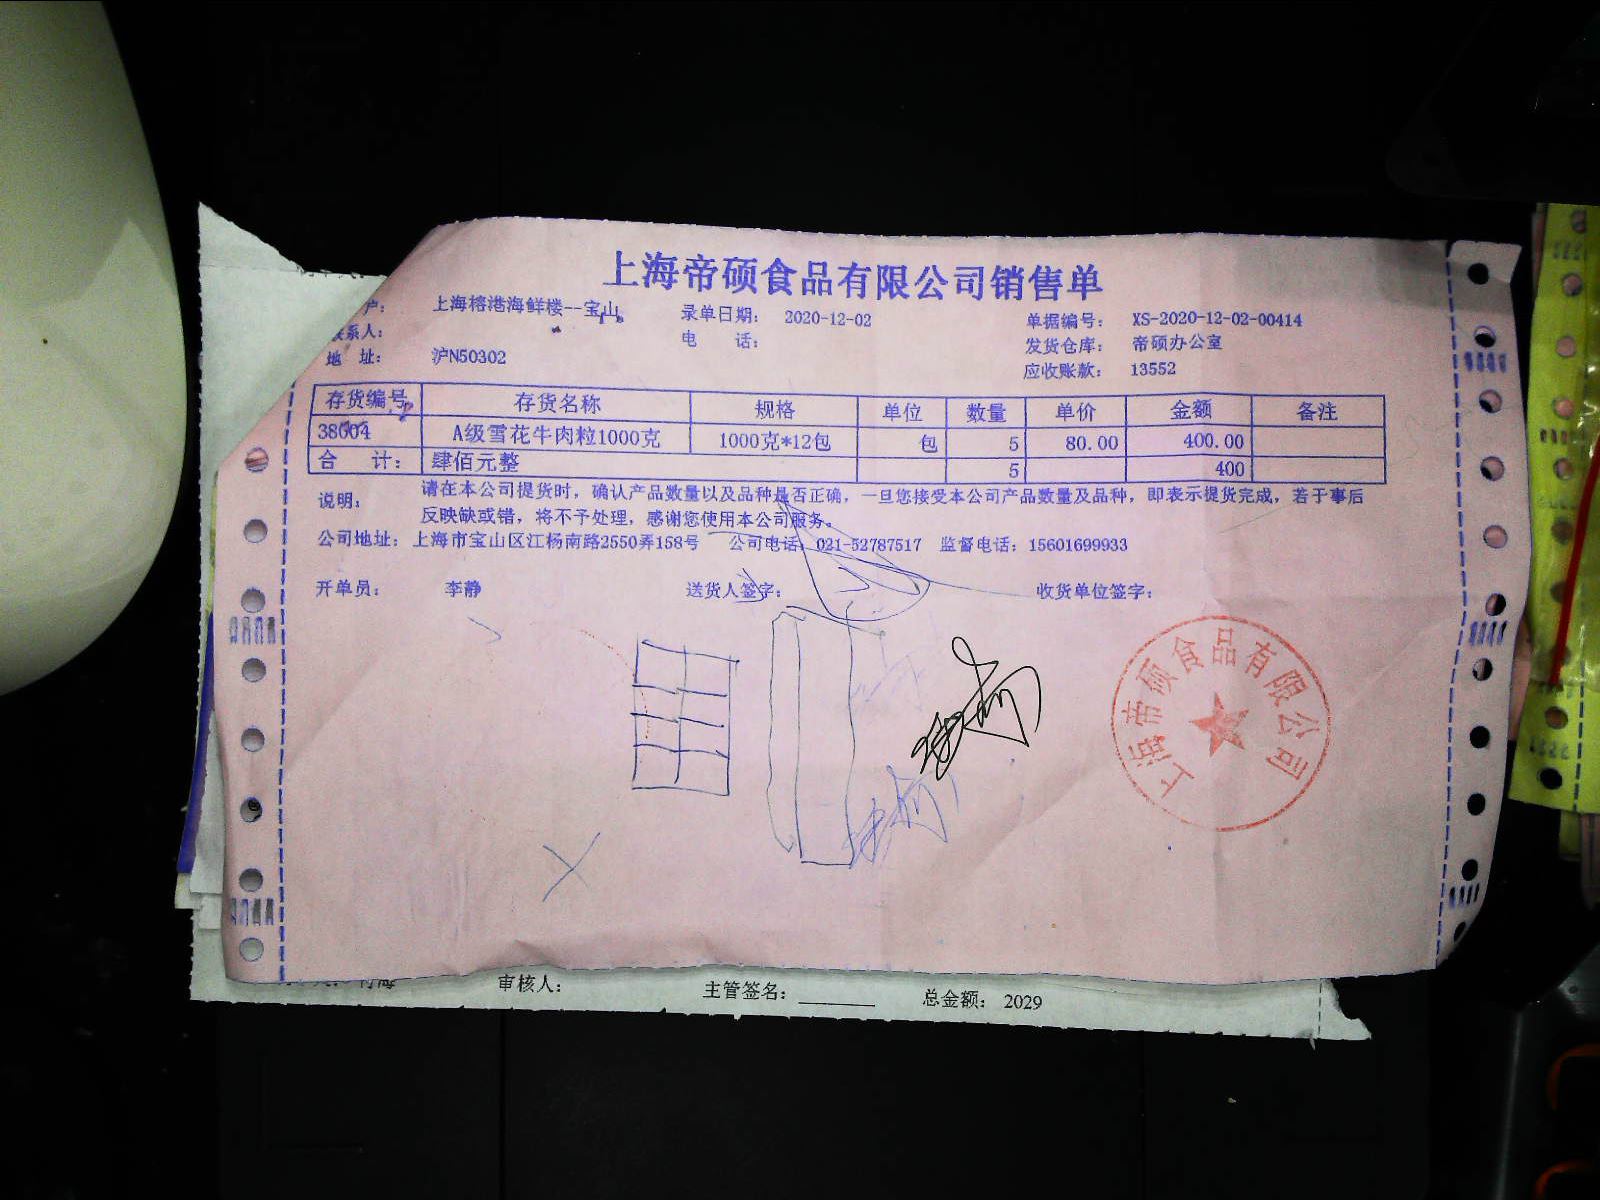 上海帝硕食品有限公司销售单
户： 上海榕港海鲜楼--宝山 录单日期： 2020-12-02 单据编号： XS-2020-12-02-00414
联系人： 电 话： 发货仓库： 帝硕办公室
地 址： 沪N50302 应收账款： 13552
存货编号 存货名称 规格 单位 数量 单价 金额 备注
38004 A级雪花牛肉粒1000克 1000克*12包 包 5 80.00 400.00
合 计： 肆佰元整 5 400
说明： 请在本公司提货时，确认产品数量以及品种是否正确，一旦您接受本公司产品数量及品种，即表示提货完成，若于事后
反映缺或错，将不予处理，感谢您使用本公司服务。
公司地址： 上海市宝山区江杨南路2550弄158号 公司电话：021-52787517 监督电话：15601699933
开单员： 李静 送货人签字： 收货单位签字：
上海帝硕食品有限公司
审核人： 主管签名： 总金额： 2029